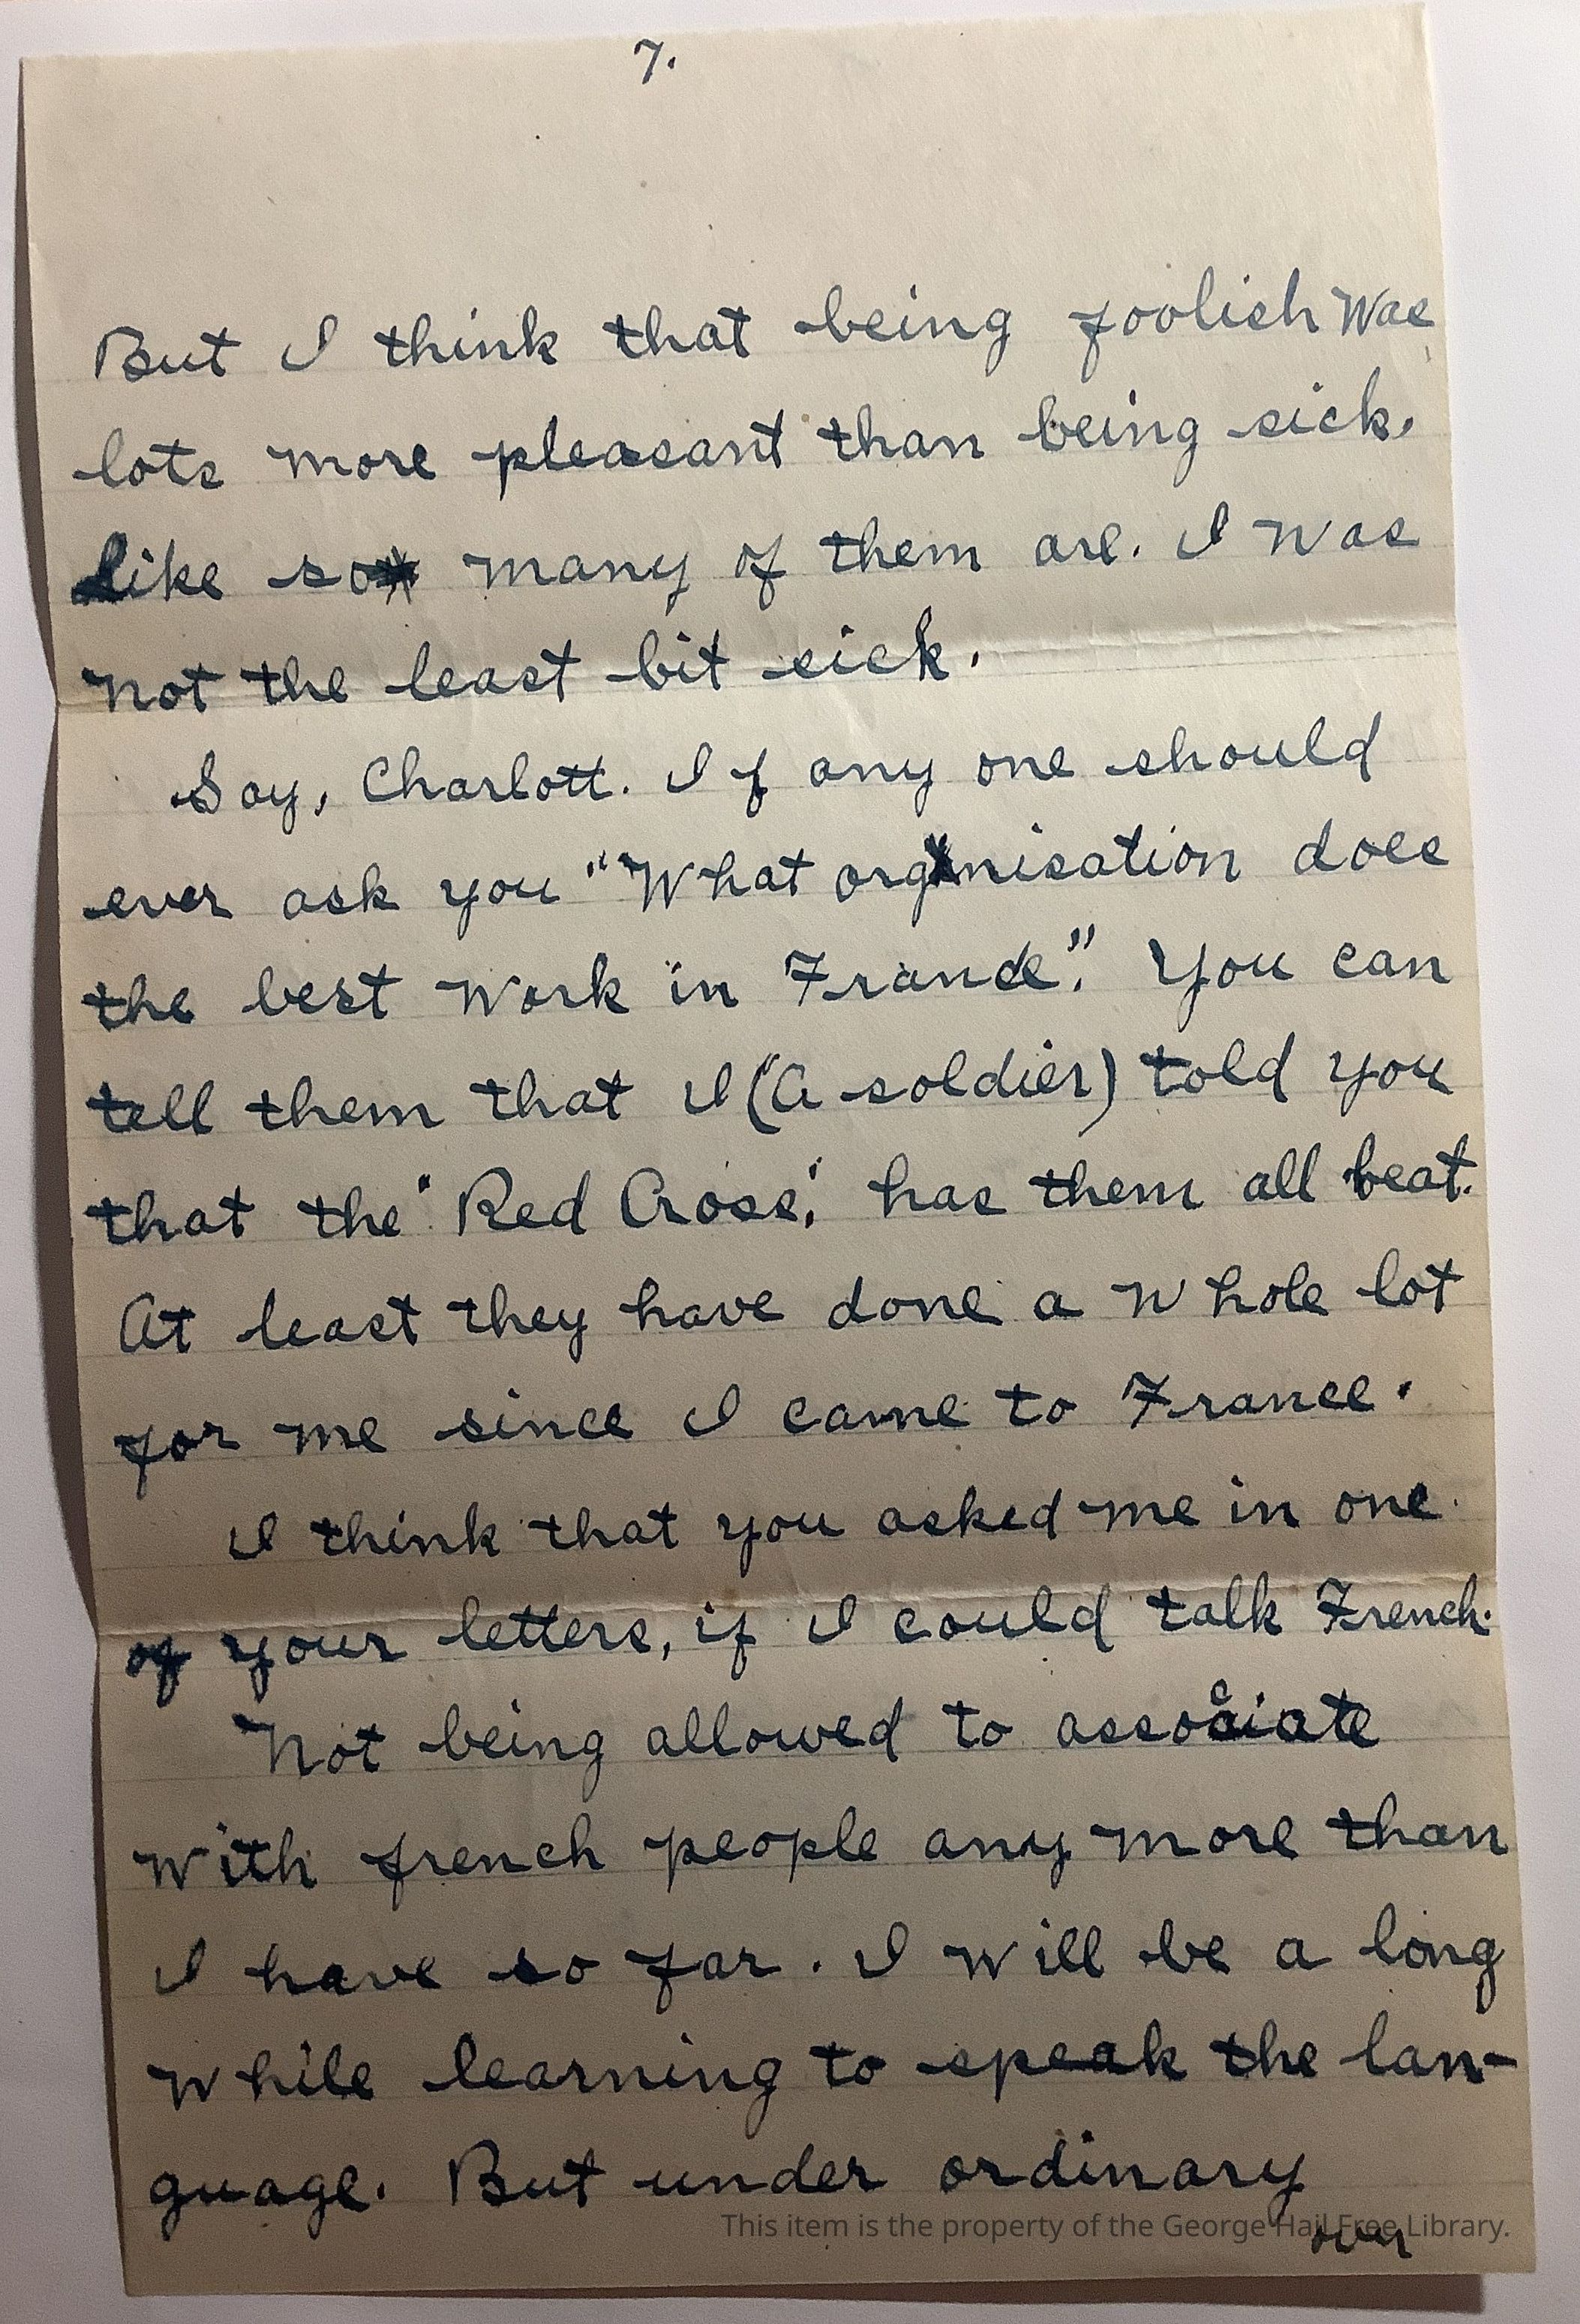 7.
But I think that being foolish was
lots more pleasant than being sick.
Like so many of them are. I was
not the least bit sick.
Say, Charlott. If any one should
ever ask you "What organisation does
the best work in France". You can
tell them that I (A soldier) told you
that the "Red Cross," has them all beat.
At least they have done a whole lot
for me since I came to France.
I think that you asked me in one
of your letters, if I could talk French.
Not being allowed to associate
with french people any more than
I have so far. I will be a long
while learning to speak the lan-
guage. But under ordinary
over
This item is the property of the George Hail Free Library.